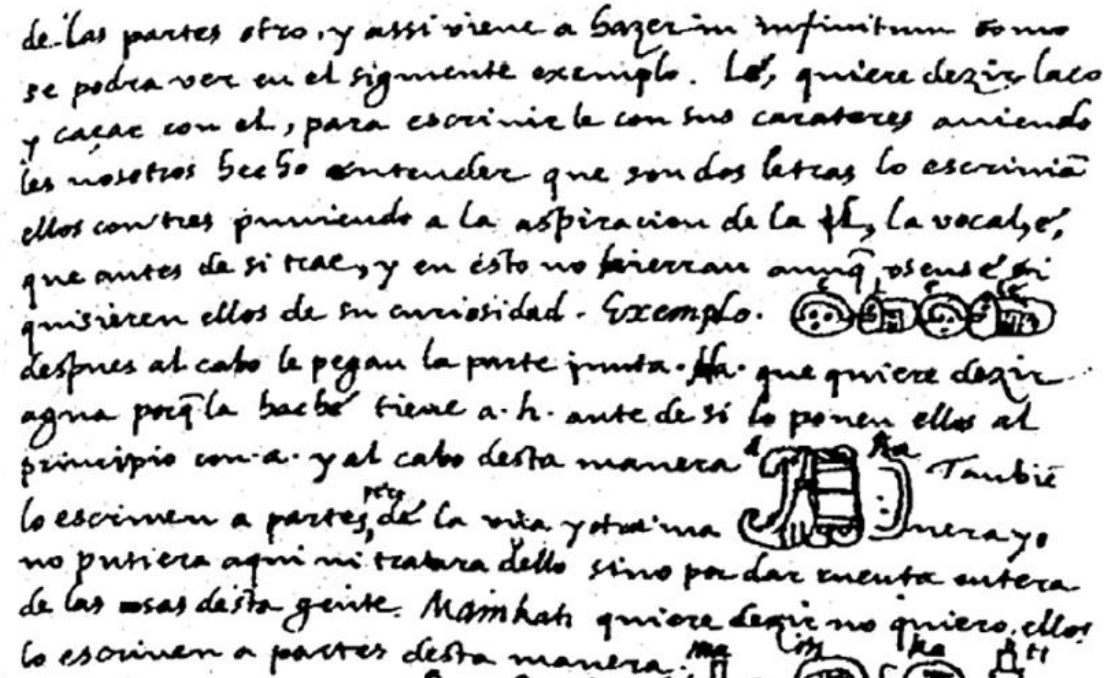 de las partes otro, y assi viene a hazer in infinitum como
se podra ver en el siguiente exemplo. Lé, quiere dezir laço
y caçar con el, para escrivirle con sus carateres aviendo
les nosotros hecho entender que son dos letras lo escrivian̄
ellos con tres puniendo a la aspiracion de la l, la vocal, é,
que antes de si trae, y en esto no hierran aunq̄ osense si
quisieren ellos de su curiosidad. Exemplo. e l e lé
despues al cabo le pegan la parte junta. Ha. que quiere dezir
agua porq̄ la haché tiene a. h. ante de si lo ponen ellos al
principio con a. y al cabo desta manera a ha Tambiē
lo escriven a partes, pero de la una y otra ma nera yo
no pusiera aqui ni tratara dello sino por dar cuenta entera
de las cosas desta gente. Mainkati quiere dezir no quiero, ellos
lo escriven a partes desta manera. ma in ka ti